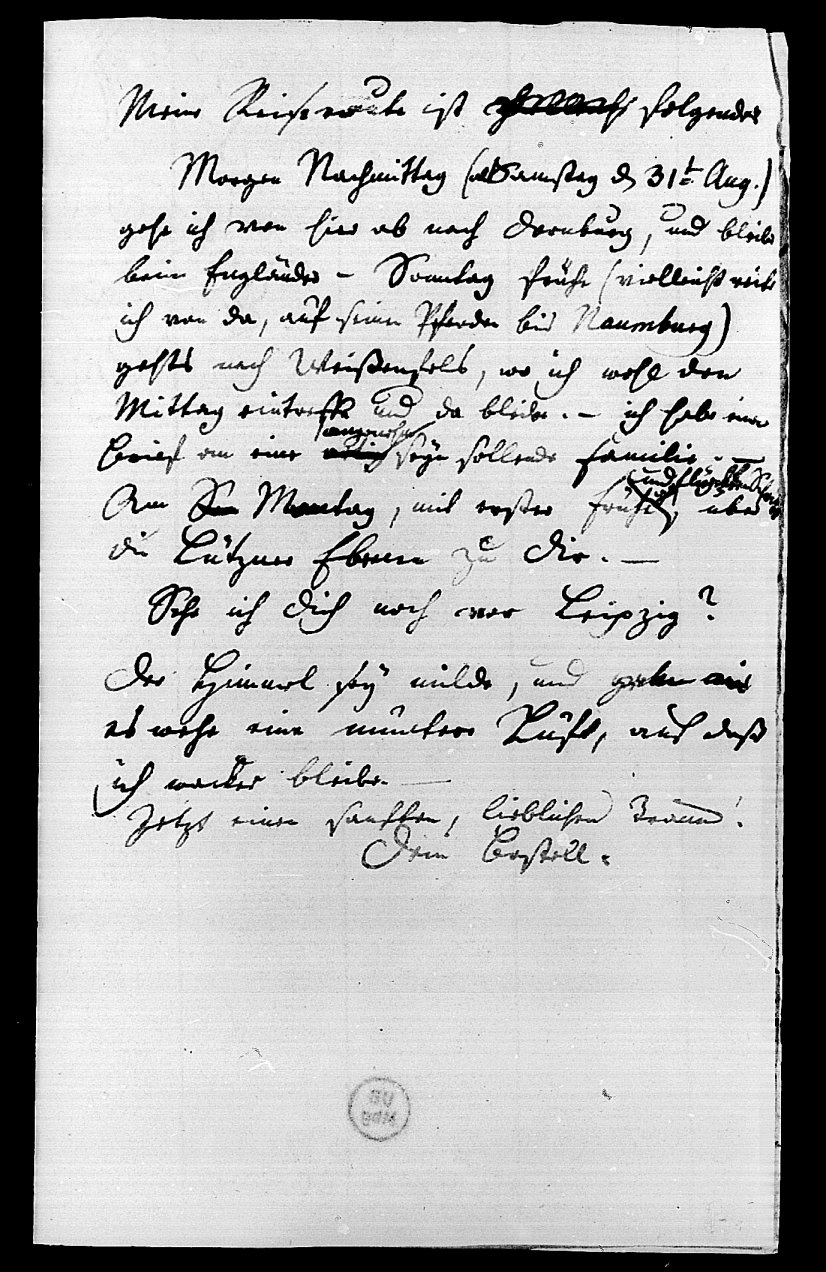 Meine Reiseroute ist folgende
Morgen Nachmittag (als Samstag d 31t. Aug.)
gehe ich von hier ab nach Dornburg, und bleibe
beim Engländer – Sonntag frühe (vielleicht reite
ich von da, auf seinen Pferden bis Naumburg)
gehts nach Weißenfels, wo ich wohl den
Mittag eintreffe und da bleibe. – ich habe einen
angenehm
Brief an eine seyn sollende Familie. –
und flügelten
Am Son Montag, mit erster Frühe, über
die Lützner Ebene zu Dir. –
Sehe ich Dich noch vor Leipzig?
Der Himmel sey milde, und
es wehe eine muntere Luft, auf daß
ich wacker bleibe. –
Jetzt einen sanften, lieblichen Traum!
Dein